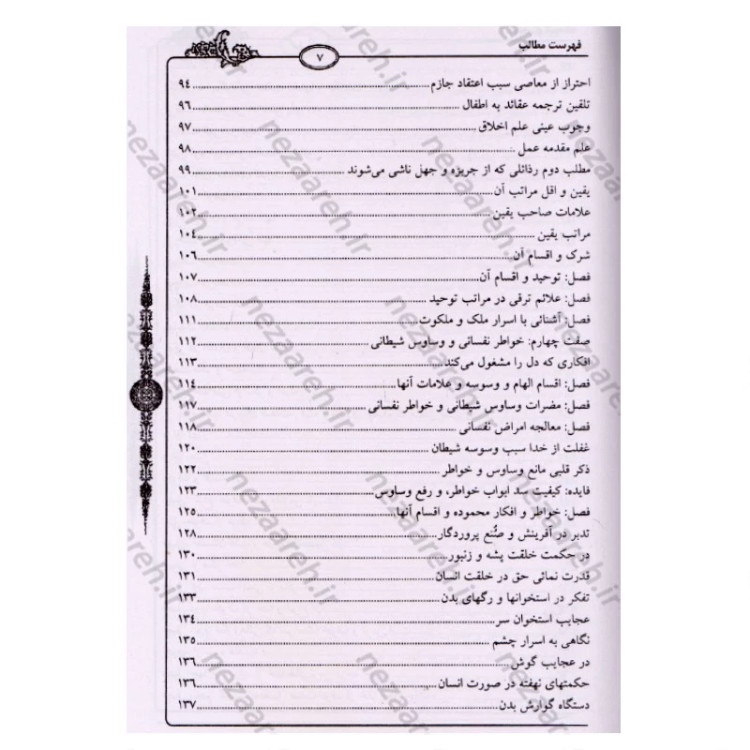 فهرست مطالب
۷
احتراز از معاصی سبب اعتقاد جازم ........ ۹۴
تلقین ترجمه عقائد به اطفال ........ ۹۶
وجوب عینی علم اخلاق ........ ۹۷
علم مقدمه عمل ........ ۹۸
مطلب دوم رذائلی که از جربزه و جهل ناشی می‌شوند ........ ۹۹
یقین و اقل مراتب آن ........ ۱۰۱
علامات صاحب یقین ........ ۱۰۲
مراتب یقین ........ ۱۰۴
شرک و اقسام آن ........ ۱۰۶
فصل: توحید و اقسام آن ........ ۱۰۷
فصل: علائم ترقی در مراتب توحید ........ ۱۰۸
فصل: آشنائی با اسرار ملک و ملکوت ........ ۱۱۱
صفت چهارم: خواطر نفسانی و وساوس شیطانی ........ ۱۱۲
افکاری که دل را مشغول می‌کند ........ ۱۱۳
فصل: اقسام الهام و وسوسه و علامات آنها ........ ۱۱۴
فصل: مضرات وساوس شیطانی و خواطر نفسانی ........ ۱۱۷
فصل: معالجه امراض نفسانی ........ ۱۱۸
غفلت از خدا سبب وسوسه شیطان ........ ۱۲۰
ذکر قلبی مانع وساوس و خواطر ........ ۱۲۲
فایده: کیفیت سد ابواب خواطر، و رفع وساوس ........ ۱۲۳
فصل: خواطر و افکار محموده و اقسام آنها ........ ۱۲۵
تدبر در آفرینش و صُنع پروردگار ........ ۱۲۸
در حکمت خلقت پشه و زنبور ........ ۱۳۰
قدرت نمائی حق در خلقت انسان ........ ۱۳۱
تفکر در استخوانها و رگهای بدن ........ ۱۳۳
عجایب استخوان سر ........ ۱۳۴
نگاهی به اسرار چشم ........ ۱۳۵
در عجایب گوش ........ ۱۳۶
حکمتهای نهفته در صورت انسان ........ ۱۳۶
دستگاه گوارش بدن ........ ۱۳۷
nezaareh.ir